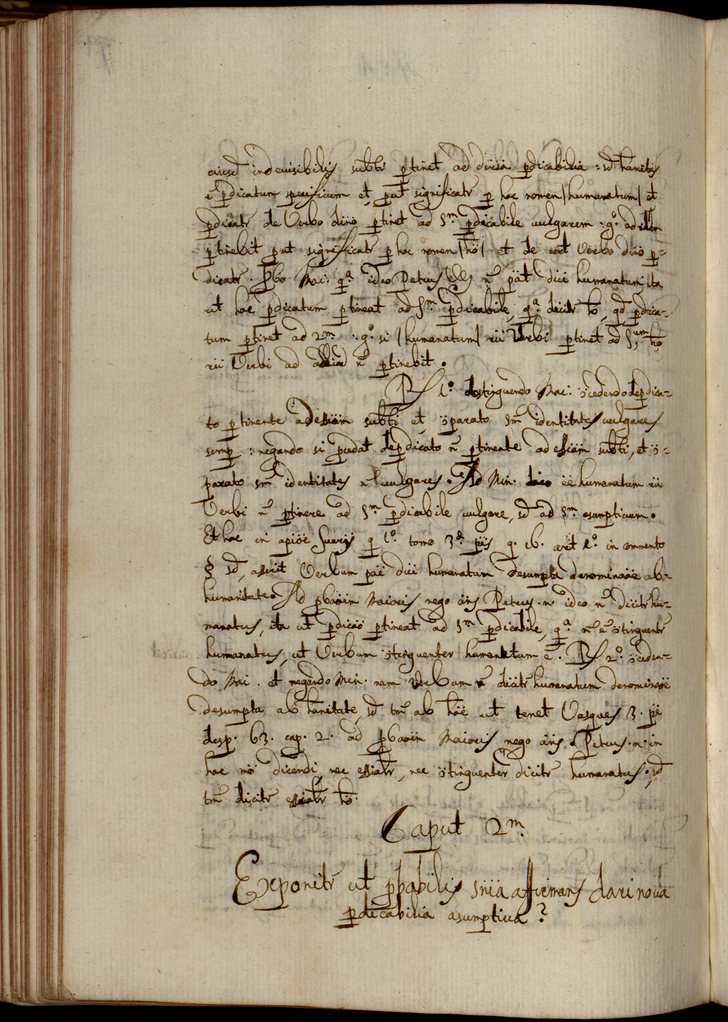 eiusd indevisibilis subti ptinet ad divia pdicabilia : sd hanitas
e pdicatum specificum et put significatr p hoc nomen /humanatum/ et
pdicatr de Verbo divo ptinet ad 5m pdicabile vulgarem : go ad illm
ptinebit put significatr p hoc nomen /ho/ et de Verbo divo p-
dicatr . Pbo Mai: qa ideo Petrus no pat dici humanatum ita
ut hoc pdicatum ptineat ad 5m pdicabile, qa dicitr ho qd pdica-
tum ptinet ad 2m : go si /humanatum/ rii Verbi ptinet ad 5um ho
rii Verbi ad aliud n ptinebit .
Rs 1o. distinguendo Mai: ɔcedendo de pdica-
to ptinente ad essiam subti et ɔparato sm identitates vulgares
semp : negando si procedat de pdicato n ptinente ad essiam subti, et ɔ-
parato sm identitates n vulgares . Ad Min. dico ee humanatum rii
Verbi n ptinere ad 5m pdicabile vulgare, sd ad 5m asumptivum .
Et hoc in apioe Suarij q 1o. tomo 3a pis q. 16. arti 1o. in commento
§ sd, asserit Verbum pae dici humanatum desumpta denominaoe ab
humanitate. Ad pbaoin Maioris nego ans Petrus . n ideo n dicitr hu-
manatus, ita ut pdicao ptineat ad 5m pdicabile, qa n e ɔtinguentr
humanatus, ut Verbum ɔtinguenter humanatum e . Rs 2o. ɔceden-
do Mai . et negando Min: nam Verbum n dicitr humanatum denominaoe
desumpta ab hanitate, sd tm ab hoe ut tenet Vasques 3. pe
desp. 63. cap. 2. ad pbaoin Maioris nego ans . Petrus . n . in
hoc mo dicendi, nec essiatr, nec ɔtinguenter dicitr humanatus , sd
tm dicitr essiatr ho .
Caput 2m.
Exponitr ut pbabilis snia affirmans dari nova
pdicabilia asumptiva ?